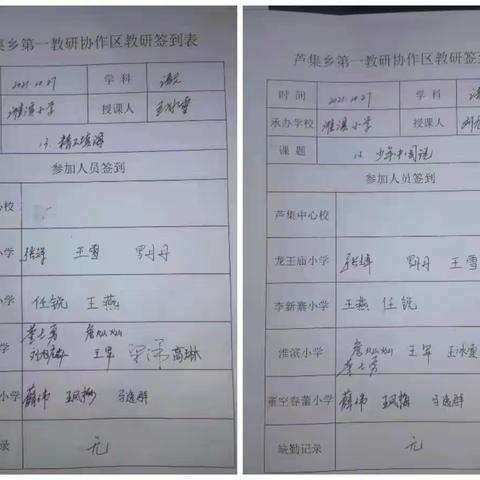 集乡第一教研协作区教研签到表
2021.10.27 学 科 语文
淮滨小学 授课人 王冰雪
13. 精卫填海
参加人员签到
心校
小学 张峰 王雪 罗丹丹
小学 任锐 王燕
学 李士芳 詹灿灿
王军 高琳
小学 薛伟 马逸群
录 无
芦集乡第一教研协作区教研签
时 间 2021.10.27 学 科
承办学校 淮滨小学 授课人
课 题 13. 少年中国说
参加人员签到
芦集中心校
龙王庙小学 张峰 王雪
李新寨小学 王燕 任锐
淮滨小学 詹灿灿 王军 王冰雪
李士芳
董空春蕾小学 薛伟 马逸群
缺勤记录 无